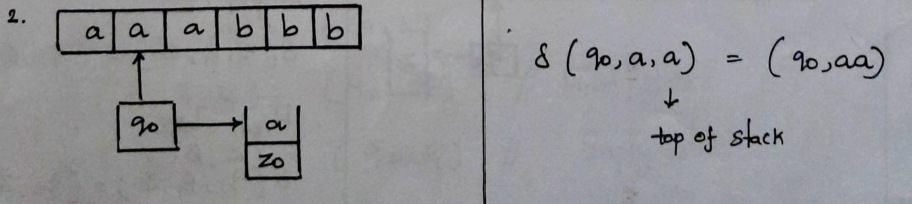 2.
a a a b b b
q0
a
z0
δ (q0, a, a) = (q0, aa)
↓
top of stack